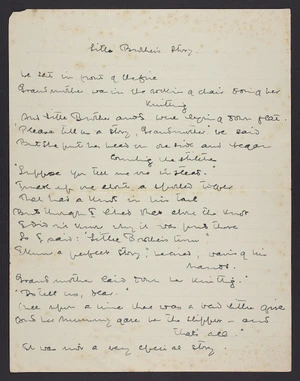 Little Brother's Story
We sat in front of the fire
Grandmother was in the rocking chair doing her
knitting
And Little Brother and I were lying down flat.
"Please tell us a story, Grandmother" we said
But she put her head on one side and began
counting her stitches
"Suppose you tell me one instead."
I made up one about a spotted tiger
That had a knot in his tail
But though I liked that about the knot
I didn't know why it was put there
So I said: "Little Brother's turn"
"I know a perfect story" he cried, waving his
hands.
Grandmother laid down her knitting.
"Do tell us, dear."
"Once upon a time there was a bad little girl
And her Mummy gave her the slipper – and
that's all."
It was not a very special story.